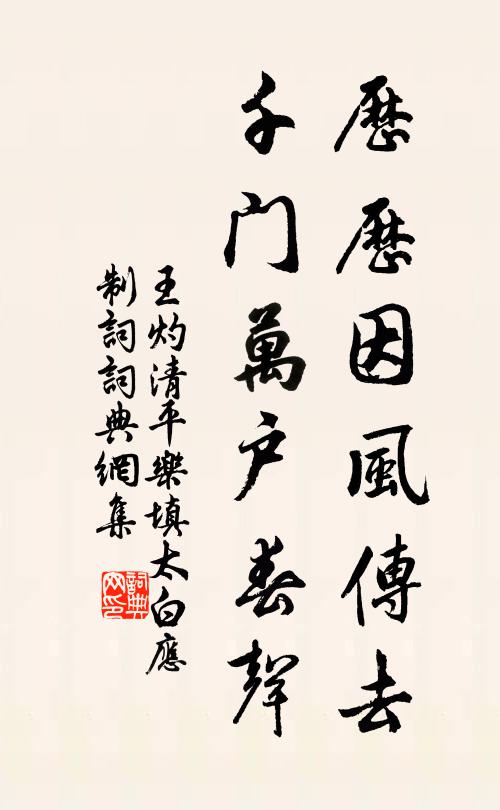 歷歷因風傳去
千門萬户春聲
王灼清平樂填太白應
制詞詞典網集
詞典網印